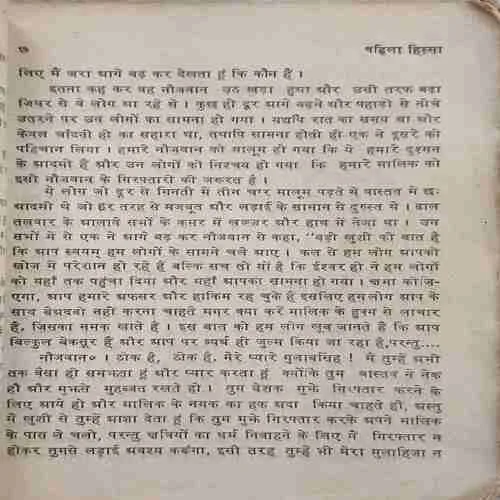 ७ पहिला हिस्सा
लिए मैं जरा आगे बढ़ कर देखता हूं कि कौन है ।
इतना कह कर वह नौजवान उठ खड़ा हुआ और उसी तरफ बढ़ा
जिधर से वे लोग आ रहे थे । कुछ ही दूर आगे बढ़ने और पहाड़ी से नीचे
उतरने पर उन लोगों का सामना हो गया । यद्यपि रात का समय था और
केवल चाँदनी ही का सहारा था, तथापि सामना होते ही एक ने दूसरे को
पहिचान लिया । हमारे नौजवान को मालूम हो गया कि ये हमारे दुश्मन
के आदमी हैं और उन लोगों को निश्चय हो गया कि हमारे मालिक को
इसी नौजवान के गिरफ्तारी की जरूरत है ।
ये लोग जो दूर से गिनती में तीन चार मालूम पड़ते थे वास्तव में छः
आदमी थे जो हर तरह से मजबूत और लड़ाई के सामान से दुरुस्त थे । ढाल
तलवार के अलावे सभों के कमर में खञ्जर और हाथ में नेजा था । उन
सभों में से एक ने आगे बढ़ कर नौजवान से कहा, "बड़ी खुशी की बात है
कि आप स्वयम् हम लोगों के सामने चले आए । कल से हम लोग आपकी
खोज में परेशान हो रहे हैं बल्कि सच तो यों है कि ईश्वर ही ने हम लोगों
को यहाँ तक पहुंचा दिया और यहाँ आपका सामना हो गया । क्षमा कीजि-
एगा, आप हमारे अफसर और हाकिम रह चुके हैं इसलिए हम लोग आप के
साथ बेअदबी नहीं करना चाहते मगर क्या करें मालिक के हुक्म से लाचार
हैं, जिसका नमक खाते हैं । इस बात को हम लोग खूब जानते हैं कि आप
बिल्कुल बेकसूर हैं और आप पर व्यर्थ ही जुल्म किया जा रहा है,परन्तु....
नौजवान० । ठीक है, ठीक है, मेरे प्यारे गुलाबसिंह ! मैं तुम्हें अभी
तक वैसा ही समझता हूं और प्यार करता हूं क्योंकि तुम वास्तव में नेक
हो और मुझसे मुहब्बत रखते हो । तुम बेशक मुझे गिरफ्तार करने के
लिए आये हो और मालिक के नमक का हक अदा किया चाहते हो, अस्तु
मैं खुशी से तुम्हें आज्ञा देता हूं कि तुम मुझे गिरफ्तार करके अपने मालिक
के पास ले चलो, परन्तु क्षत्रियों का धर्म निबाहने के लिए मैं गिरफ्तार न
होकर तुमसे लड़ाई अवश्य करूंगा, इसी तरह तुम्हें भी मेरा मुलाहिजा न